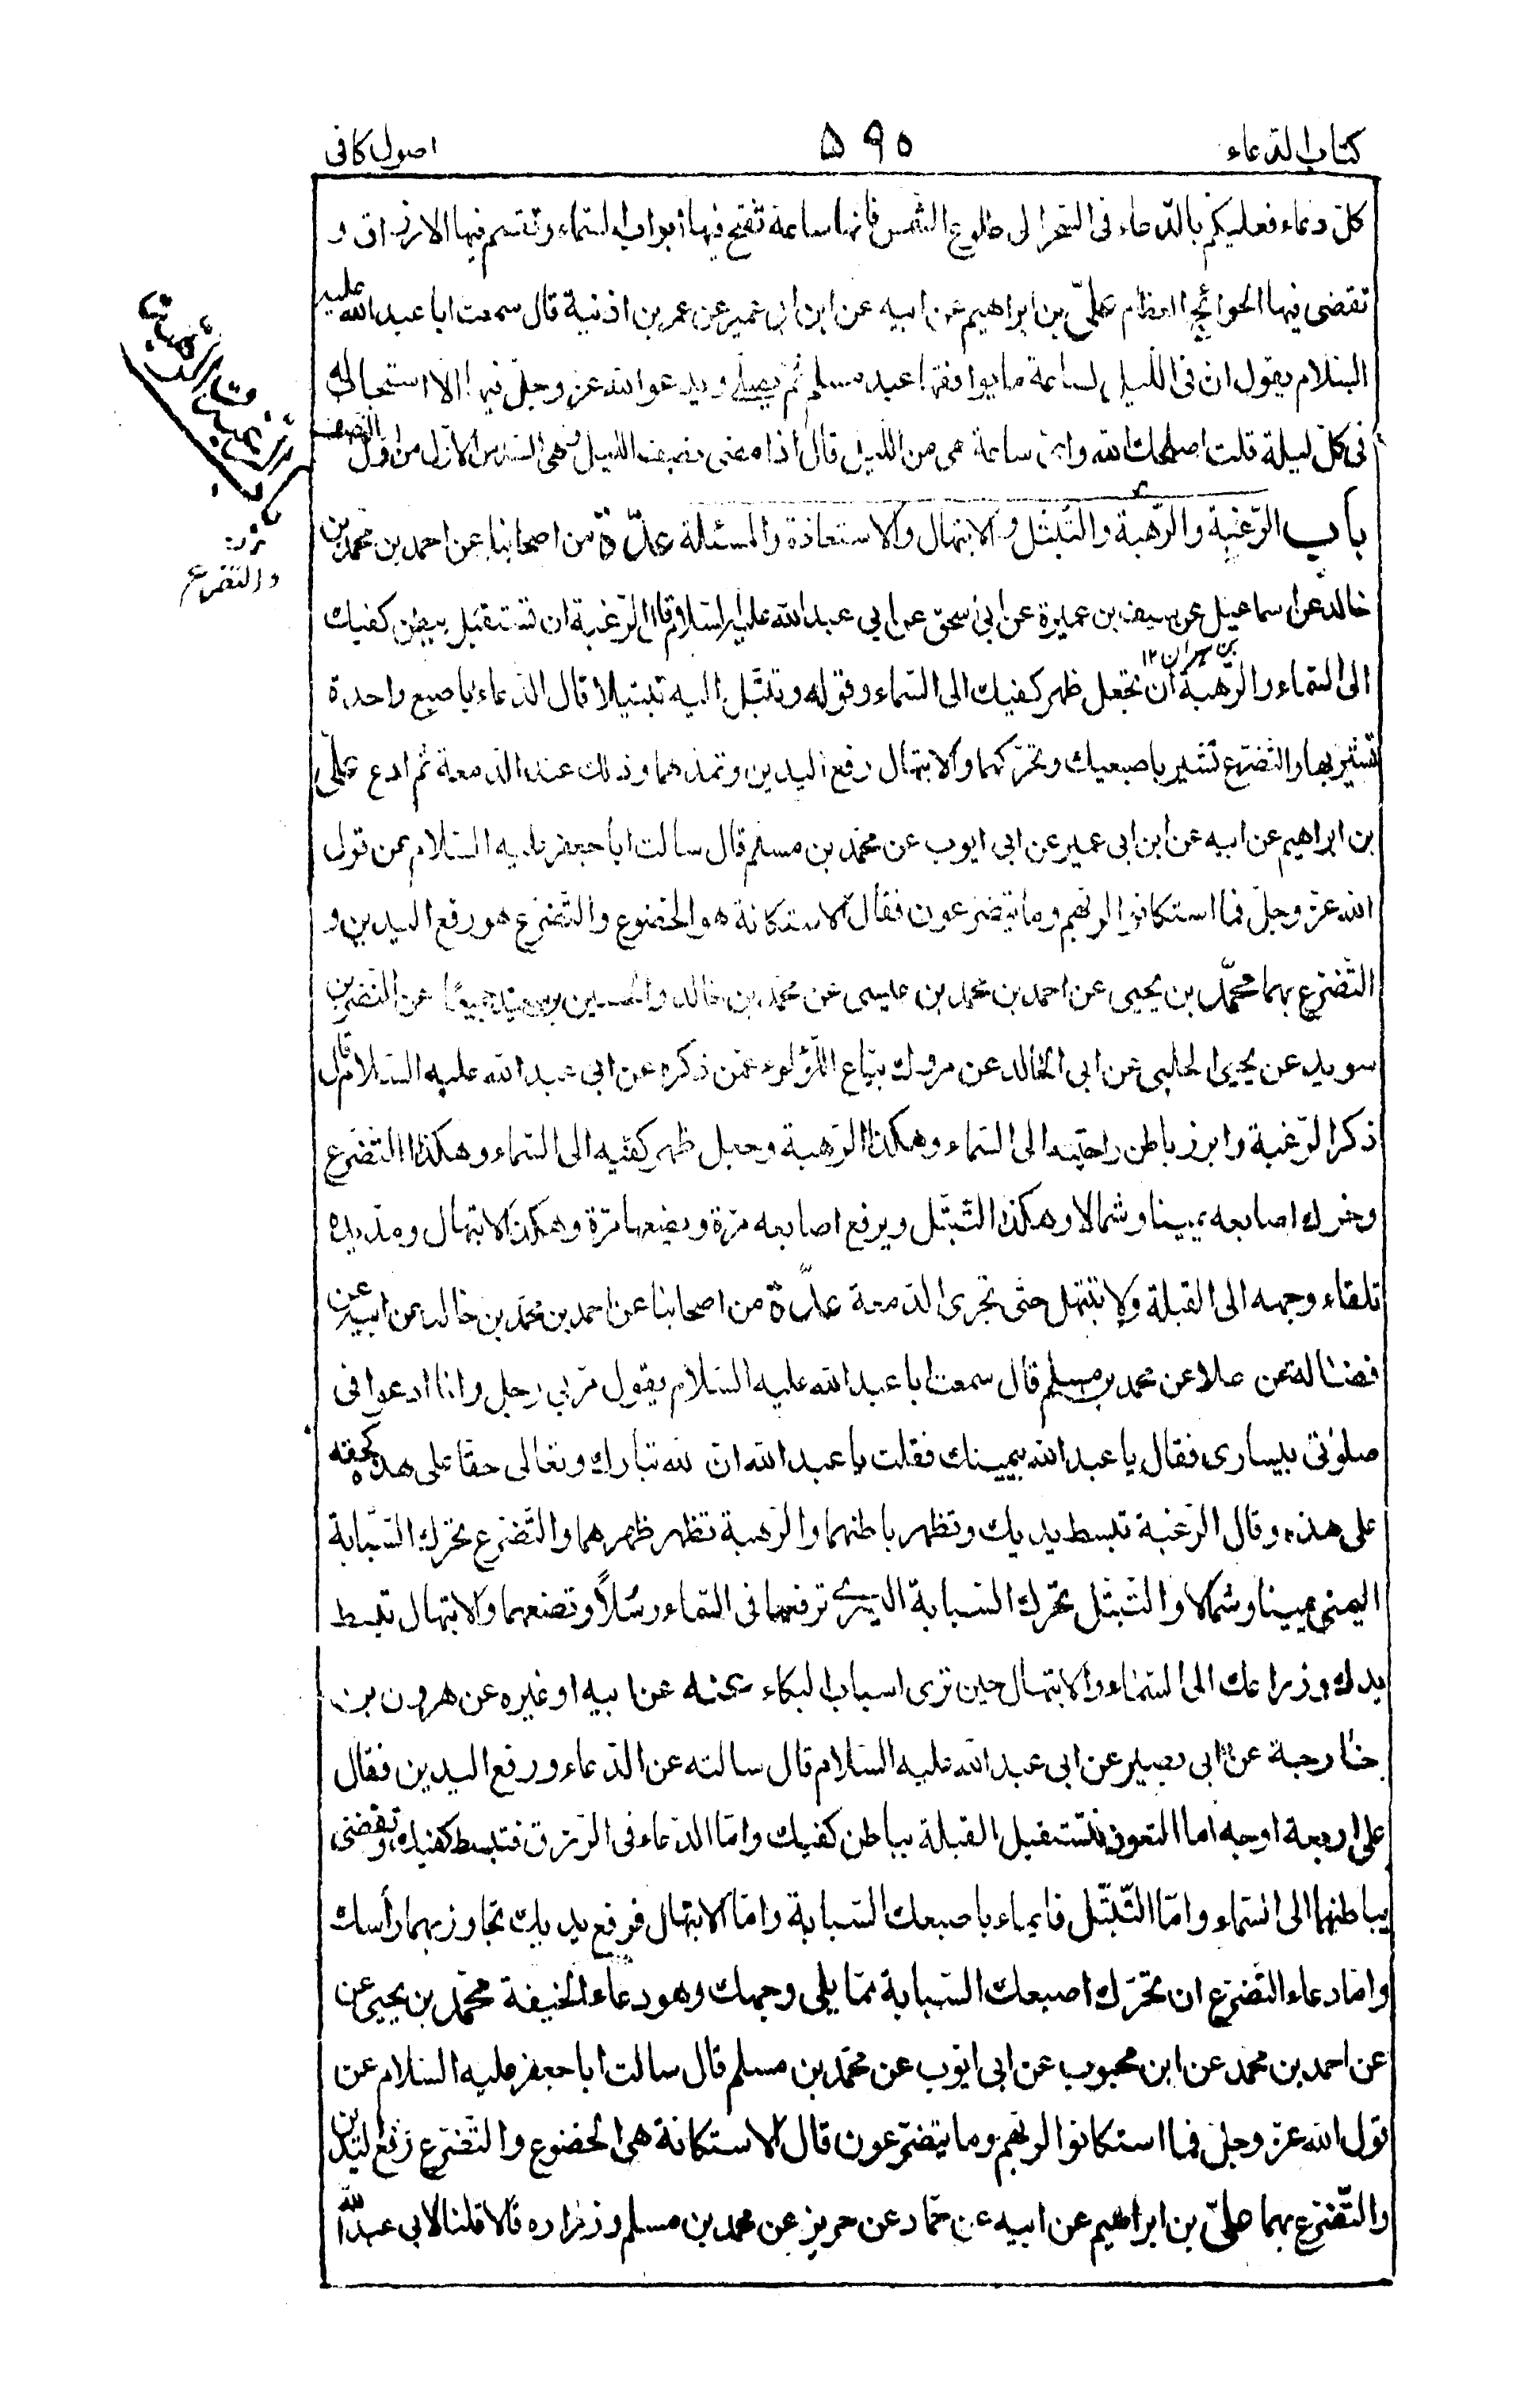 كتاب الدعاء
٥٩٥
اصول كافى
كلّ دعاء فعليكم بالدّعاء فى السّحر الى طلوع الشّمس فانها ساعة تفتح فيها ابواب السّماء وتقسم فيها الارزاق و
تقضى فيها الحوائج العظام علىّ بن ابراهيم عن ابيه عن ابن ابى عمير عن عمر بن اذنية قال سمعت ابا عبد الله عليه
السّلام يقول ان فى اللّيل لساعة ما يوافقها عبد مسلم ثم يصلى ويدعو الله عزّ وجلّ فيها الا استجاب له
فى كلّ ليلة قلت اصلحك الله واىّ ساعة هى من اللّيل قال اذا مضى نصف اللّيل وهى السّدس الاوّل من اوّل النّصف
باب الرّغبة والرّهبة والتّبتّل والابتهال والاستعاذة والمسئلة عدّة من اصحابنا عن احمد بن محمد بن
خالد عن اسماعيل عن سيف بن عميرة عن ابى اسحق عن ابى عبد الله عليه السّلام قال الرّغبة ان تستقبل ببطن كفيك
بن مهران ١٢
الى السّماء والرّهبة ان تجعل ظهر كفيك الى السّماء وقوله وتبتّل اليه تبتيلا قال الدّعاء باصبع واحدة
تشير بها والتّضرّع تشير باصبعيك وتحرّكهما والابتهال رفع اليدين وتمدّهما وذلك عند الدّمعة ثم ادع علىّ
بن ابراهيم عن ابيه عن ابن ابى عمير عن ابى ايوب عن محمّد بن مسلم قال سالت ابا جعفر عليه السّلام عن قول
الله عزّ وجلّ فما استكانوا لربّهم وما يتضرّعون فقال الاستكانة هو الخضوع والتّضرّع هو رفع اليدين و
التّضرّع بهما محمّد بن يحيى عن احمد بن محمد بن عيسى عن محمّد بن خالد والحسين بن سعيد جميعًا عن النّضر بن
سويد عن يحيى الحلبى عن ابى الخالد عن مروك بيّاع اللّؤلوء عمّن ذكره عن ابى عبد الله عليه السّلام قال
ذكر الرّغبة وابرز باطن راحتيه الى السّماء وهكذا الرّهبة وجعل ظهر كفّيه الى السّماء وهكذا التّضرّع
وحرك اصابعه يمينا وشمالا وهكذا التّبتّل ويرفع اصابعه مرّة ويضعها مرّة وهكذا الابتهال ومدّ يده
تلقاء وجهه الى القبلة ولا تبتهل حتّى تجرى الدّمعة عدّة من اصحابنا عن احمد بن محمّد بن خالد عن ابيه عن
فضالة عن علا عن محمد بن مسلم قال سمعت ابا عبد الله عليه السّلام يقول مرّ بى رجل وانا ادعوا فى
صلوتى بيسارى فقال يا عبد الله بيمينك فقلت يا عبد الله انّ لله تبارك وتعالى حقّا على هذه كحقّه
على هذه وقال الرّغبة تبسط يديك وتظهر باطنهما والرّهبة تظهر ظهرهما والتّضرّع تحرّك السّبابة
اليمنى يمينا وشمالا والتّبتّل تحرّك السّبابة اليسرى ترفعها فى السّماء رسلاً وتضعهما والابتهال تبسط
يدك وذراعك الى السّماء والابتهال حين ترى اسباب البكاء عنه عن ابيه او غيره عن هرون بن
خارجة عن ابى بصير عن ابى عبد الله عليه السّلام قال سالته عن الدّعاء ورفع اليدين فقال
على اربعة اوجه اما التعوذ فتستقبل القبلة بباطن كفيك وامّا الدّعاء فى الرّزق فتبسط كفيك وتفضى
بباطنهما الى السّماء وامّا التّبتّل فايماء باصبعك السّبابة وامّا الابتهال فرفع يديك تجاوز بهما رأسك
وامّا دعاء التّضرّع ان تحرّك اصبعك السّبابة ممّا يلى وجهك وهو دعاء الخيفة محمّد بن يحيى عن
عن احمد بن محمد عن ابن محبوب عن ابى ايّوب عن محمّد بن مسلم قال سالت ابا جعفر عليه السّلام عن
قول الله عزّ وجلّ فما استكانوا لربّهم وما يتضرّعون قال الاستكانة هى الخضوع والتّضرّع رفع اليدين
والتّضرّع بهما علىّ بن ابراهيم عن ابيه عن حمّاد عن حريز عن محمد بن مسلم وزراره قالا قلنا لابى عبد الله
باب الرغبة والرهبة
والتضرع